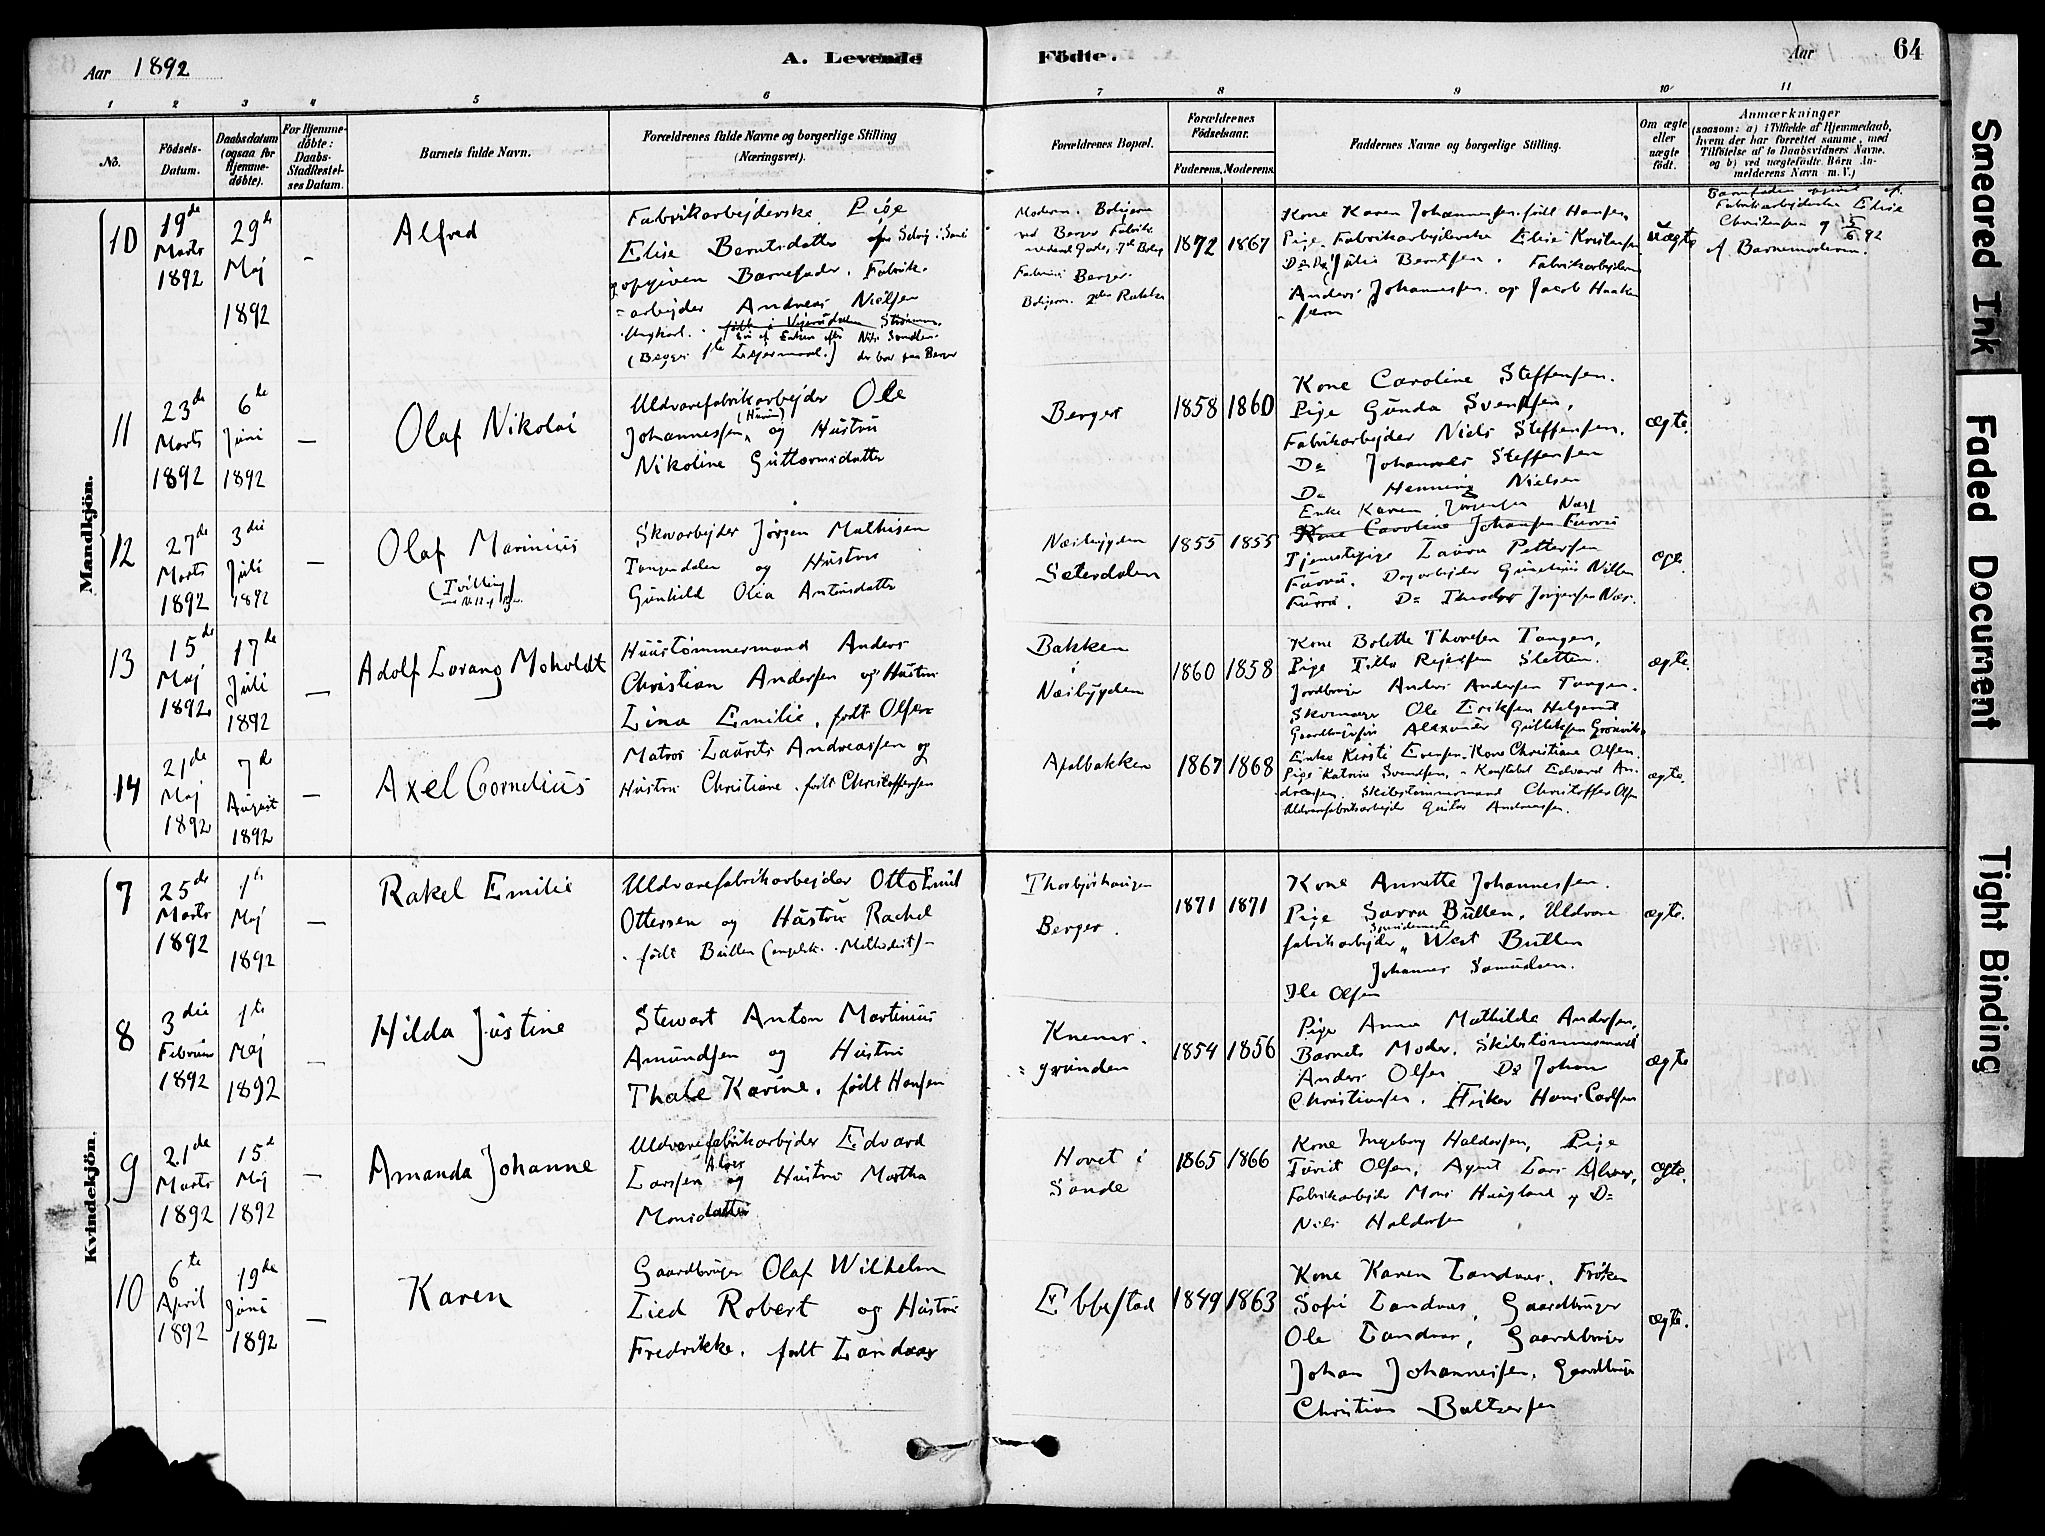 Aar 1892
A. Levende Födte.
Aar
64
1 2 3 4 5 6 7 8 9 10 11
No.
Födsels-Datum.
Daabsdatum (ogsaa for Hjemme-døbte).
For Hjemme-døbte: Daabs-Stadfæstel-ses Datum.
Barnets fulde Navn.
Forældrenes fulde Navne og borgerlige Stilling
(Næringsvei).
Forældrenes Bopæl.
Forældrenes Födselsaar.
Faderens. Moderens.
Faddernes Navne og borgerlige Stilling.
Om ægte eller uægte født.
Anmærkninger
(saasom: a) i Tilfælde af Hjemmedaab,
hvem der har forrettet samme, med
Tilföielse af to Daabsvidners Navne.
og b) ved uægtefødte Börn An-
melderens Navn m. V.)
Mandkjön.
10
19de Marts 1892
29de Maj 1892
-
Alfred
Fabrikarbejderske Pige
Elise Berntsdatter
opgiven Barnefader. Fabrik-
arbejder Andreas Nielsen
Ungkarl.
(Begges 1ste Lejermaal.)
Moderen. Boligerne
ved Berger Fabrik.
Faderen: Berger.
1872 1867
Kone Karen Johannessen, født Hansen,
Pige Fabrikarbejderske Elise Kristensen
Do Do Julie Berntsen. Fabrikarbejderne
Anders Johannessen og Jacob Haaken
-sen
uægte
Barnefaderen opgivet af
Fabrikarbejderske Elise
Christensen og 92
af Barnemoderen.
11
23de Marts 1892
6te Juni 1892
-
Olaf Nikolai
Uldvarefabrikarbejder Ole
Johannessen og Hustru
Nikoline Guttormsdatter
Berger
1858 1860
Kone Caroline Steffensen.
Pige Gunda Svendsen,
Fabrikarbejder Niels Steffensen.
Do Johannes Steffensen
Do Henning Nielsen
ægte.
12
27de Marts 1892
3die Juli 1892
-
Olaf Marinius
(Tvilling)
Skovarbejder Jörgen Mathisen
Tangendalen og Hustru
Gunhild Olia Antonsdatter
Næsbygden
Seterdalen
1855 1855
Enke Karen Jörgensen Næs
Kone Caroline Johansen Furru
Tjenestepige Laura Pettersen
Furru. Dagarbejder Gunelius Nilsen
Furru. Do Theodor Jörgensen Næs.
ægte
13
15de Maj 1892
17de Juli 1892
-
Adolf Lorang Moholdt
Huustömmermand Anders
Christian Andersen og Hustru
Lina Emilie, født Olsen
Bakken
i
Næsbygden
1860 1858
Kone Bolette Thoresen Tangen,
Pige Tilla Rejersen Sletten.
Jordbruger Anders Andersen Tangen.
Skomager Ole Eriksen Helgerud
Gaardbruger Alexander Gulliksen Grönvik
ægte.
14
21de Maj 1892
7de August 1892
-
Axel Cornelius
Matros Laurits Andreassen og
Hustru Christiane, født Christoffersen
Apalbakken
1867 1868
Enke Kirsti Evensen, Kone Christiane Olsen.
Pige Katrine Svendsen, Konstabel Edvard An-
dreasen, Skibstömmermand Christoffer Olsen
Uldvarefabrikarbejder Gustav Andreassen.
ægte.
Kvindekjön.
7
25de Marts 1892
1ste Maj 1892
-
Rakel Emilie
Uldvarefabrikarbejder Otto Emil
Ottersen og Hustru Rachel
født Butten (engelsk Methodist)
Berger.
1871 1871
Kone Annette Johannessen.
Pige Sarra Butten, Uldvare
fabrikarbejder West Butten
Johannes Samuelsen.
Ole Olsen
ægte.
8
3die Februar 1892
1ste Maj 1892
-
Hilda Justine
Stewart Anton Martinius
Amundsen og Hustru
Thale Karine, født Hansen
Knems-
grunden
1854 1856
Pige Anna Mathilde Andersen,
Barnets Moder, Skibstömmermand
Anders Olsen Do Johan
Christiansen. Fisker Hans Carlsen
ægte
9
21de Marts 1892
15de Maj 1892
-
Amanda Johanne
Uldvarefabrikarbejder Edvard
Larssen Alver og Hustru Martha
Monsdatter
Hovet i
Sande
1865 1866
Kone Ingeborg Haldorsen, Pige
Turid Olsen, Agent Lars Alver,
Fabrikarbejder Mons Haugland og Do
Nils Haldorsen
ægte.
10
6te April 1892
19de Juni 1892
-
Karen
Gaardbruger Olaf Wilhelm
Lied Robert og Hustru
Fredrikke, født Landaas
Ebbestad
1849 1863
Kone Karen Landaas, Fröken
Sofie Landaas, Gaardbruger
Ole Landaas, Gaardbruger
Johan Johannessen, Gaardbruger
Christian Baltzersen
ægte.
Smeared Ink
Faded Document
Tight Binding